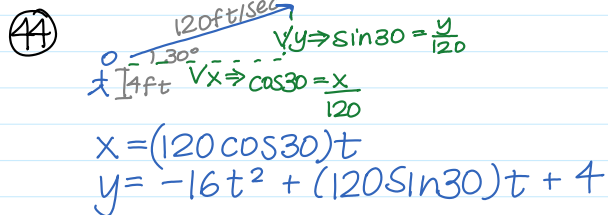 44
120ft/sec
Vy⇒sin30=y/120
30°
4ft
Vx⇒cos30=x/120
x=(120cos30)t
y=-16t²+(120sin30)t+4